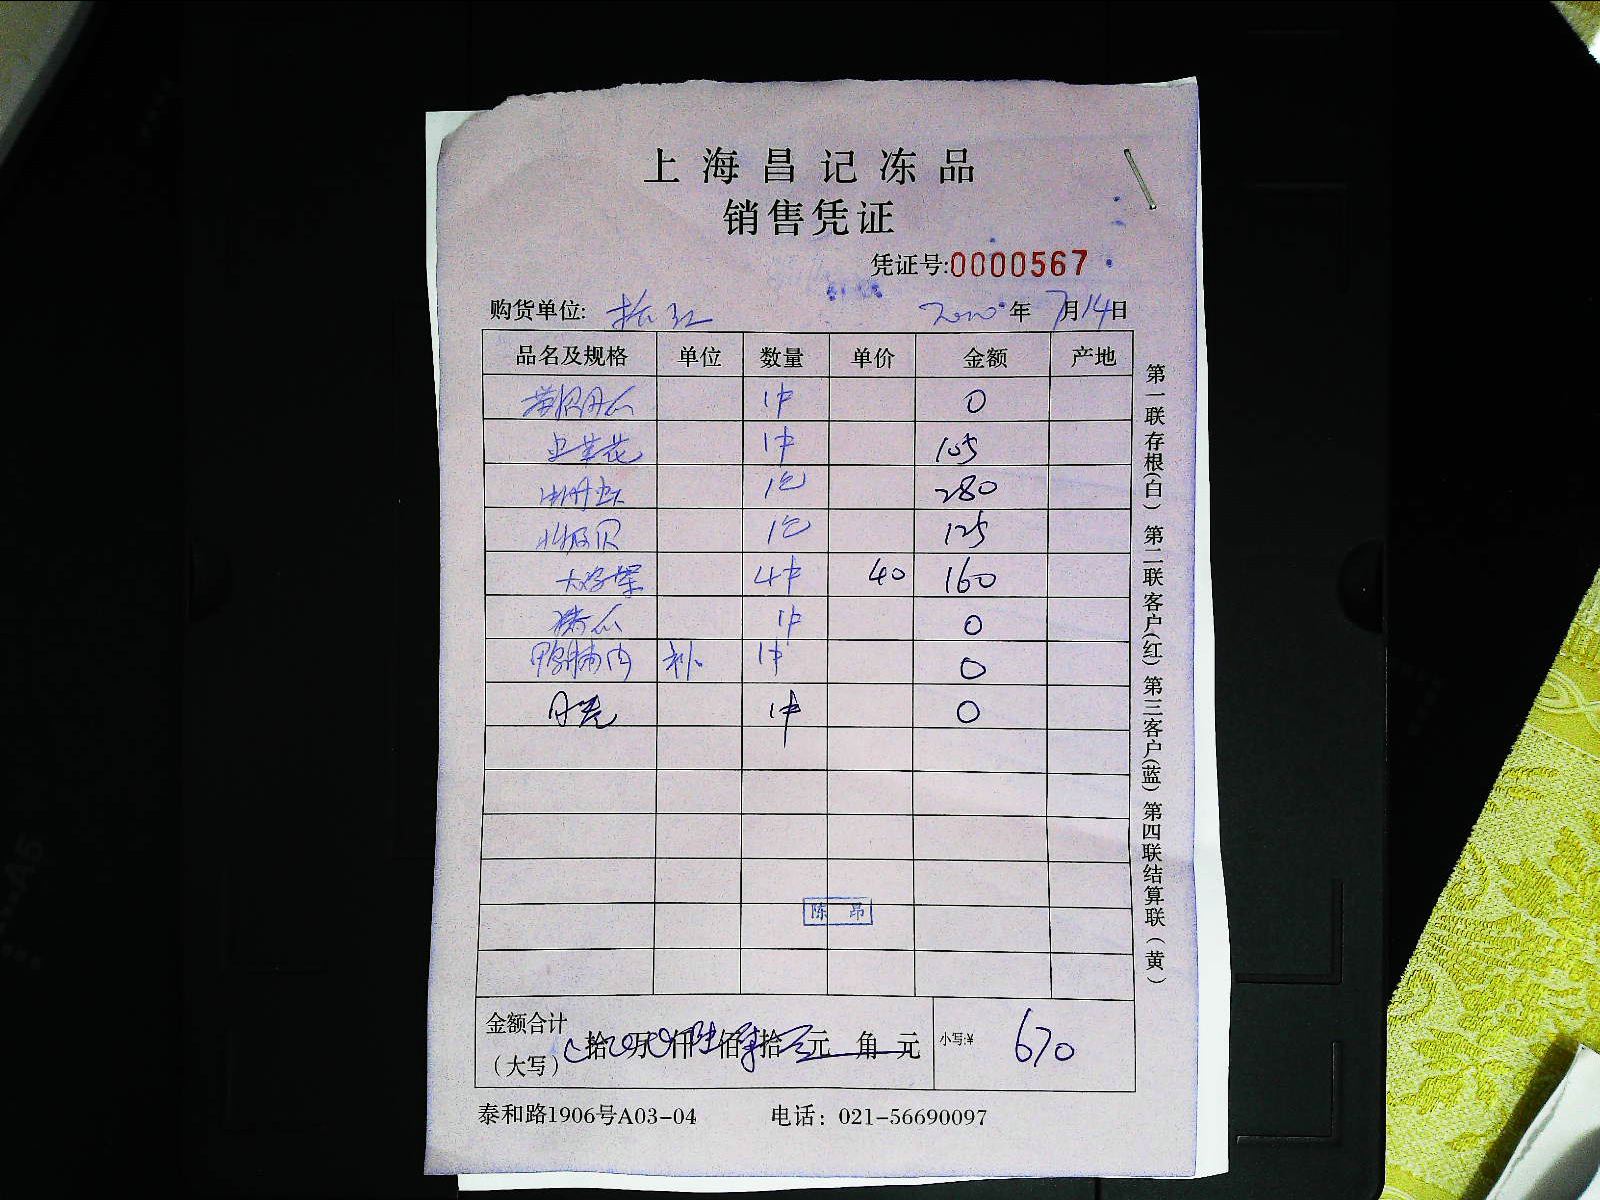 上海昌记冻品
销售凭证
凭证号:0000567
购货单位: 2020年7月14日
品名及规格 单位 数量 单价 金额 产地
1件 0
1件 105
1包 280
北极贝 1包 125
4件 40 160
1件 0
鸭脯肉 补 1件 0
1件 0
陈昂
金额合计
(大写) 拾 万 仟 陆佰 柒拾 元 角 元 小写:¥ 670
泰和路1906号A03-04 电话: 021-56690097
第一联存根(白) 第二联客户(红) 第三客户(蓝) 第四联结算联(黄)